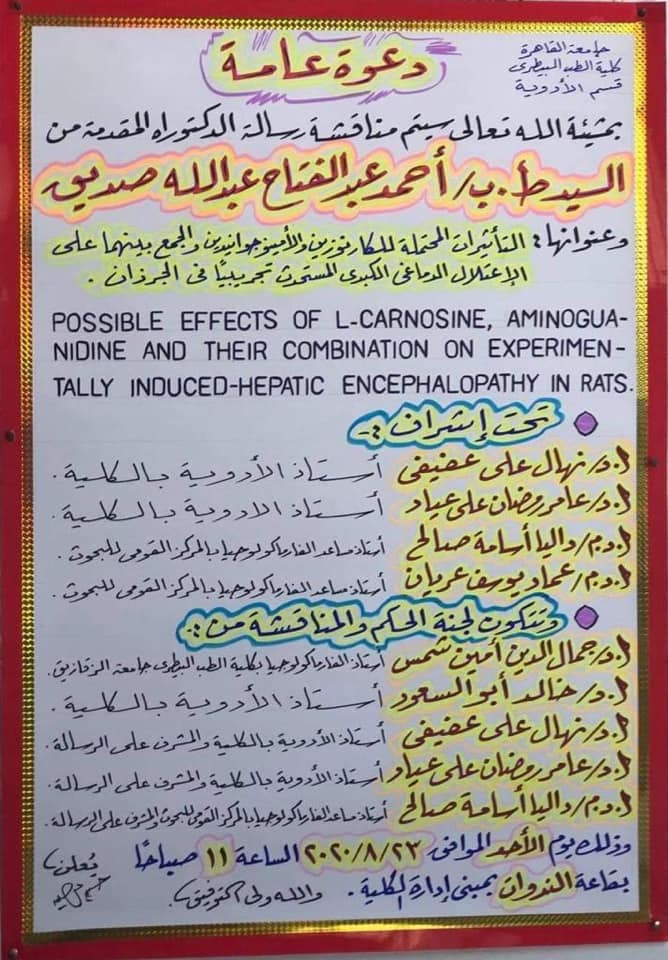 جامعة القاهرة
كلية الطب البيطرى
قسم الأدوية
دعوة عامة
بمشيئة الله تعالى سيتم مناقشة رسالة الدكتوراه المقدمة من
السيد ط.ب/ أحمد عبد الفتاح عبد الله صديق
وعنوانها: التأثيرات المحتملة للكارنوزين والأمينوجوانيدين والجمع بينهما على
الإعتلال الدماغى الكبدى المستحدث تجريبيًا فى الجرذان.
POSSIBLE EFFECTS OF L-CARNOSINE, AMINOGUA-
NIDINE AND THEIR COMBINATION ON EXPERIMEN-
TALLY INDUCED-HEPATIC ENCEPHALOPATHY IN RATS.
تحت إشراف :-
أ.د/ نهال على عفيفى أستاذ الأدوية بالكلية.
أ.د/ عامر رمضان على عياد أستاذ الادوية بالكلية.
أ.د.م/ داليا أسامة صالح أستاذ مساعد الفارماكولوجيا بالمركز القومى للبحوث.
أ.د.م/ عماد يوسف عريان أستاذ مساعد الفارماكولوجيا بالمركز القومى للبحوث.
وتتكون لجنة الحكم والمناقشة من :
أ.د/ جمال الدين أمين شمس أستاذ الفارماكولوجيا بكلية الطب البيطرى جامعة الزقازيق.
أ.د/ خالد أبو السعود أستاذ الأدوية بالكلية.
أ.د/ نهال على عفيفى أستاذ الأدوية بالكلية والمشرف على الرسالة.
أ.د/ عامر رمضان على عياد أستاذ الأدوية بالكلية والمشرف على الرسالة.
أ.د.م/ داليا أسامة صالح أستاذ مساعد الفارماكولوجيا بالمركز القومى للبحوث والمشرف على الرسالة.
وذلك يوم الأحد الموافق ٢٠٢٠/٨/٢٣ الساعة ١١ صباحًا
بقاعة الندوات بمبنى إدارة الكلية. والله ولى التوفيق.
يُعلن